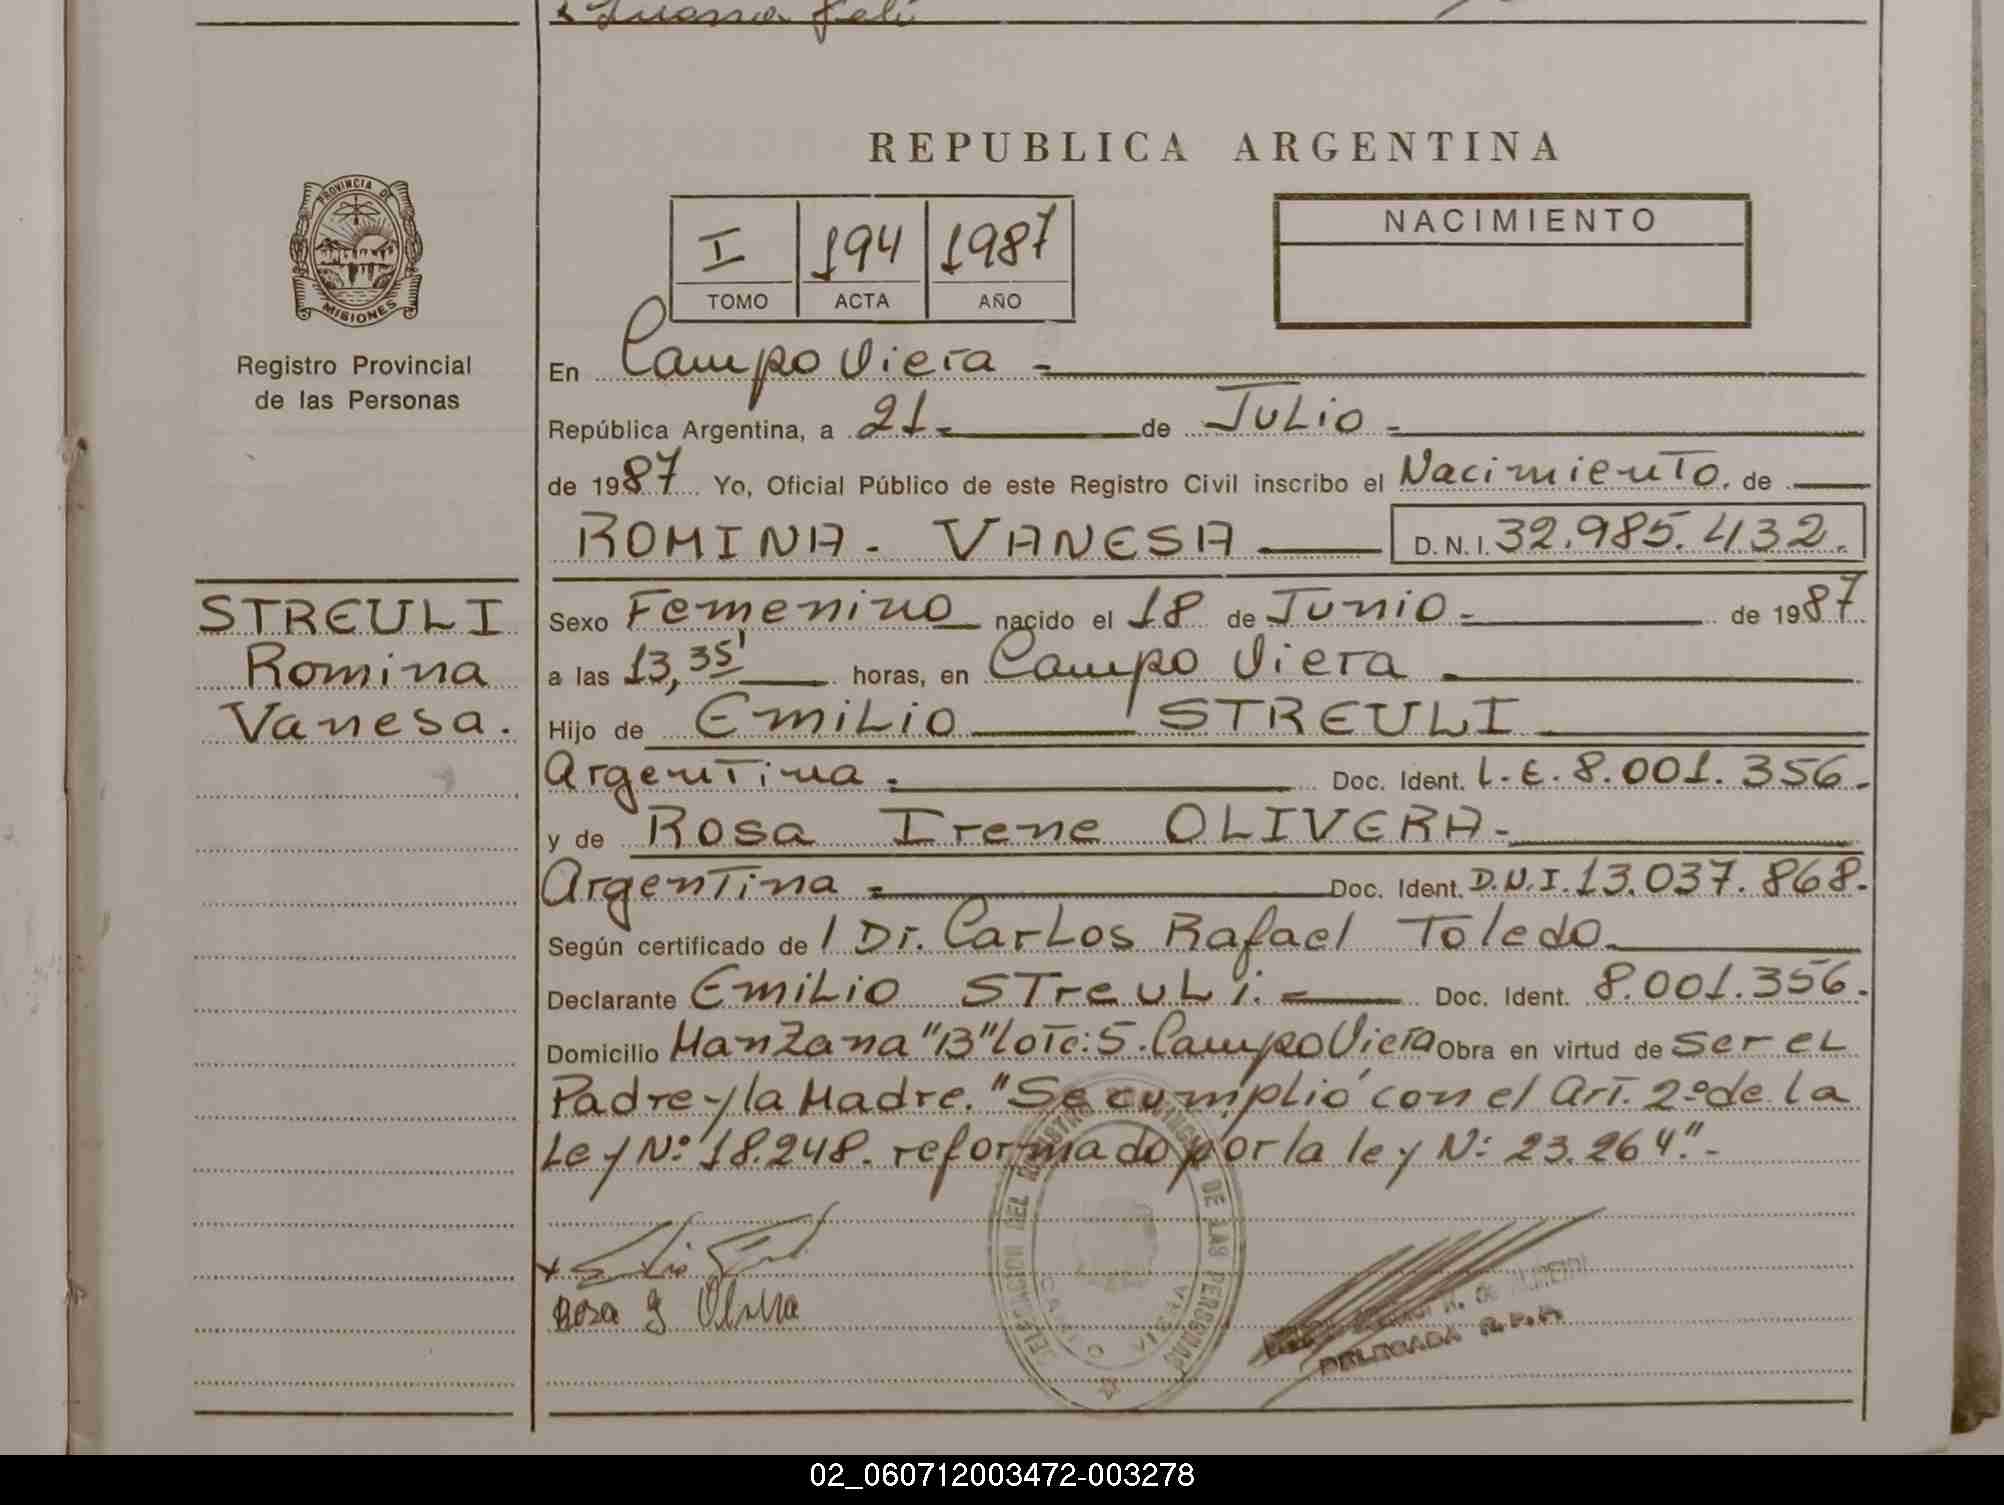 REPUBLICA ARGENTINA
PROVINCIA DE
MISIONES
Registro Provincial
de las Personas
I 194 1987
TOMO ACTA AÑO
NACIMIENTO
En Campo Viera -
República Argentina, a 21- de Julio -
de 1987 Yo, Oficial Público de este Registro Civil inscribo el Nacimiento. de
ROMINA - VANESA D.N.I. 32.985.432.
STREULI
Romina
Vanesa.
Sexo Femenino nacido el 18 de Junio - de 1987
a las 13,35' horas, en Campo Viera
Hijo de Emilio STREULI
Argentina. Doc. Ident. L.E. 8.001.356-
y de Rosa Irene OLIVERA-
Argentina - Doc. Ident. D.N.I. 13.037.868-
Según certificado de / Dr. Carlos Rafael Toledo
Declarante Emilio Streuli. - Doc. Ident. 8.001.356-
Domicilio Manzana "13" lote: 5. Campo Viera Obra en virtud de ser el
Padre y la Madre. "Se cumplió con el Art. 2º de la
Ley Nº 18.248. reformado por la ley Nº 23.264".-
Rosa I Olivera
DE LAS PERSONAS
CAMPO VIERA
DELEGADA R.P.P.
02_060712003472-003278